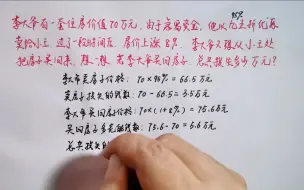 李大爷有一套住房价值70万元,由于急需资金,他以九五折优惠
卖给小王,过了一段时间后,房价上涨8%,李大爷又想从小王处
把房子买回来,想一想,若李大爷买回房子,总共损失多少万元?
李大爷卖房子价格:70×95%=66.5万元
卖房子损失的钱数:70-66.5=3.5万元
李大爷买回房子价格:70×(1+8%)=75.6万元
买回房子多花的钱数:75.6-70=5.6万元
总共损失的